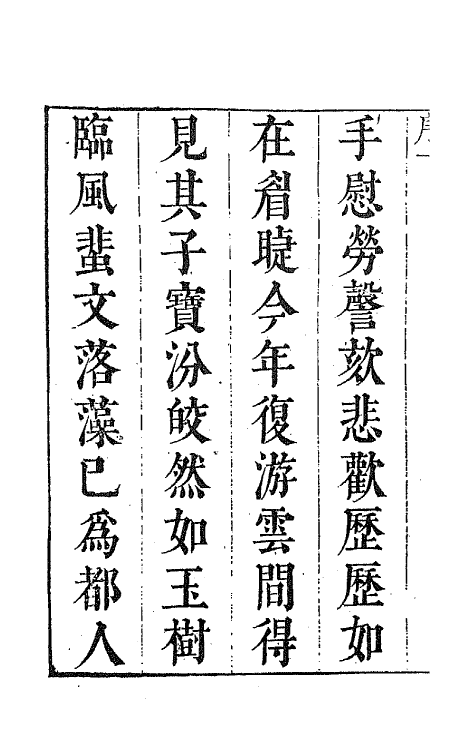 手慰勞謦欬悲歡歷歷如
在眉睫今年復游雲間得
見其子寶汾皎然如玉樹
臨風蜚文落藻已爲都人